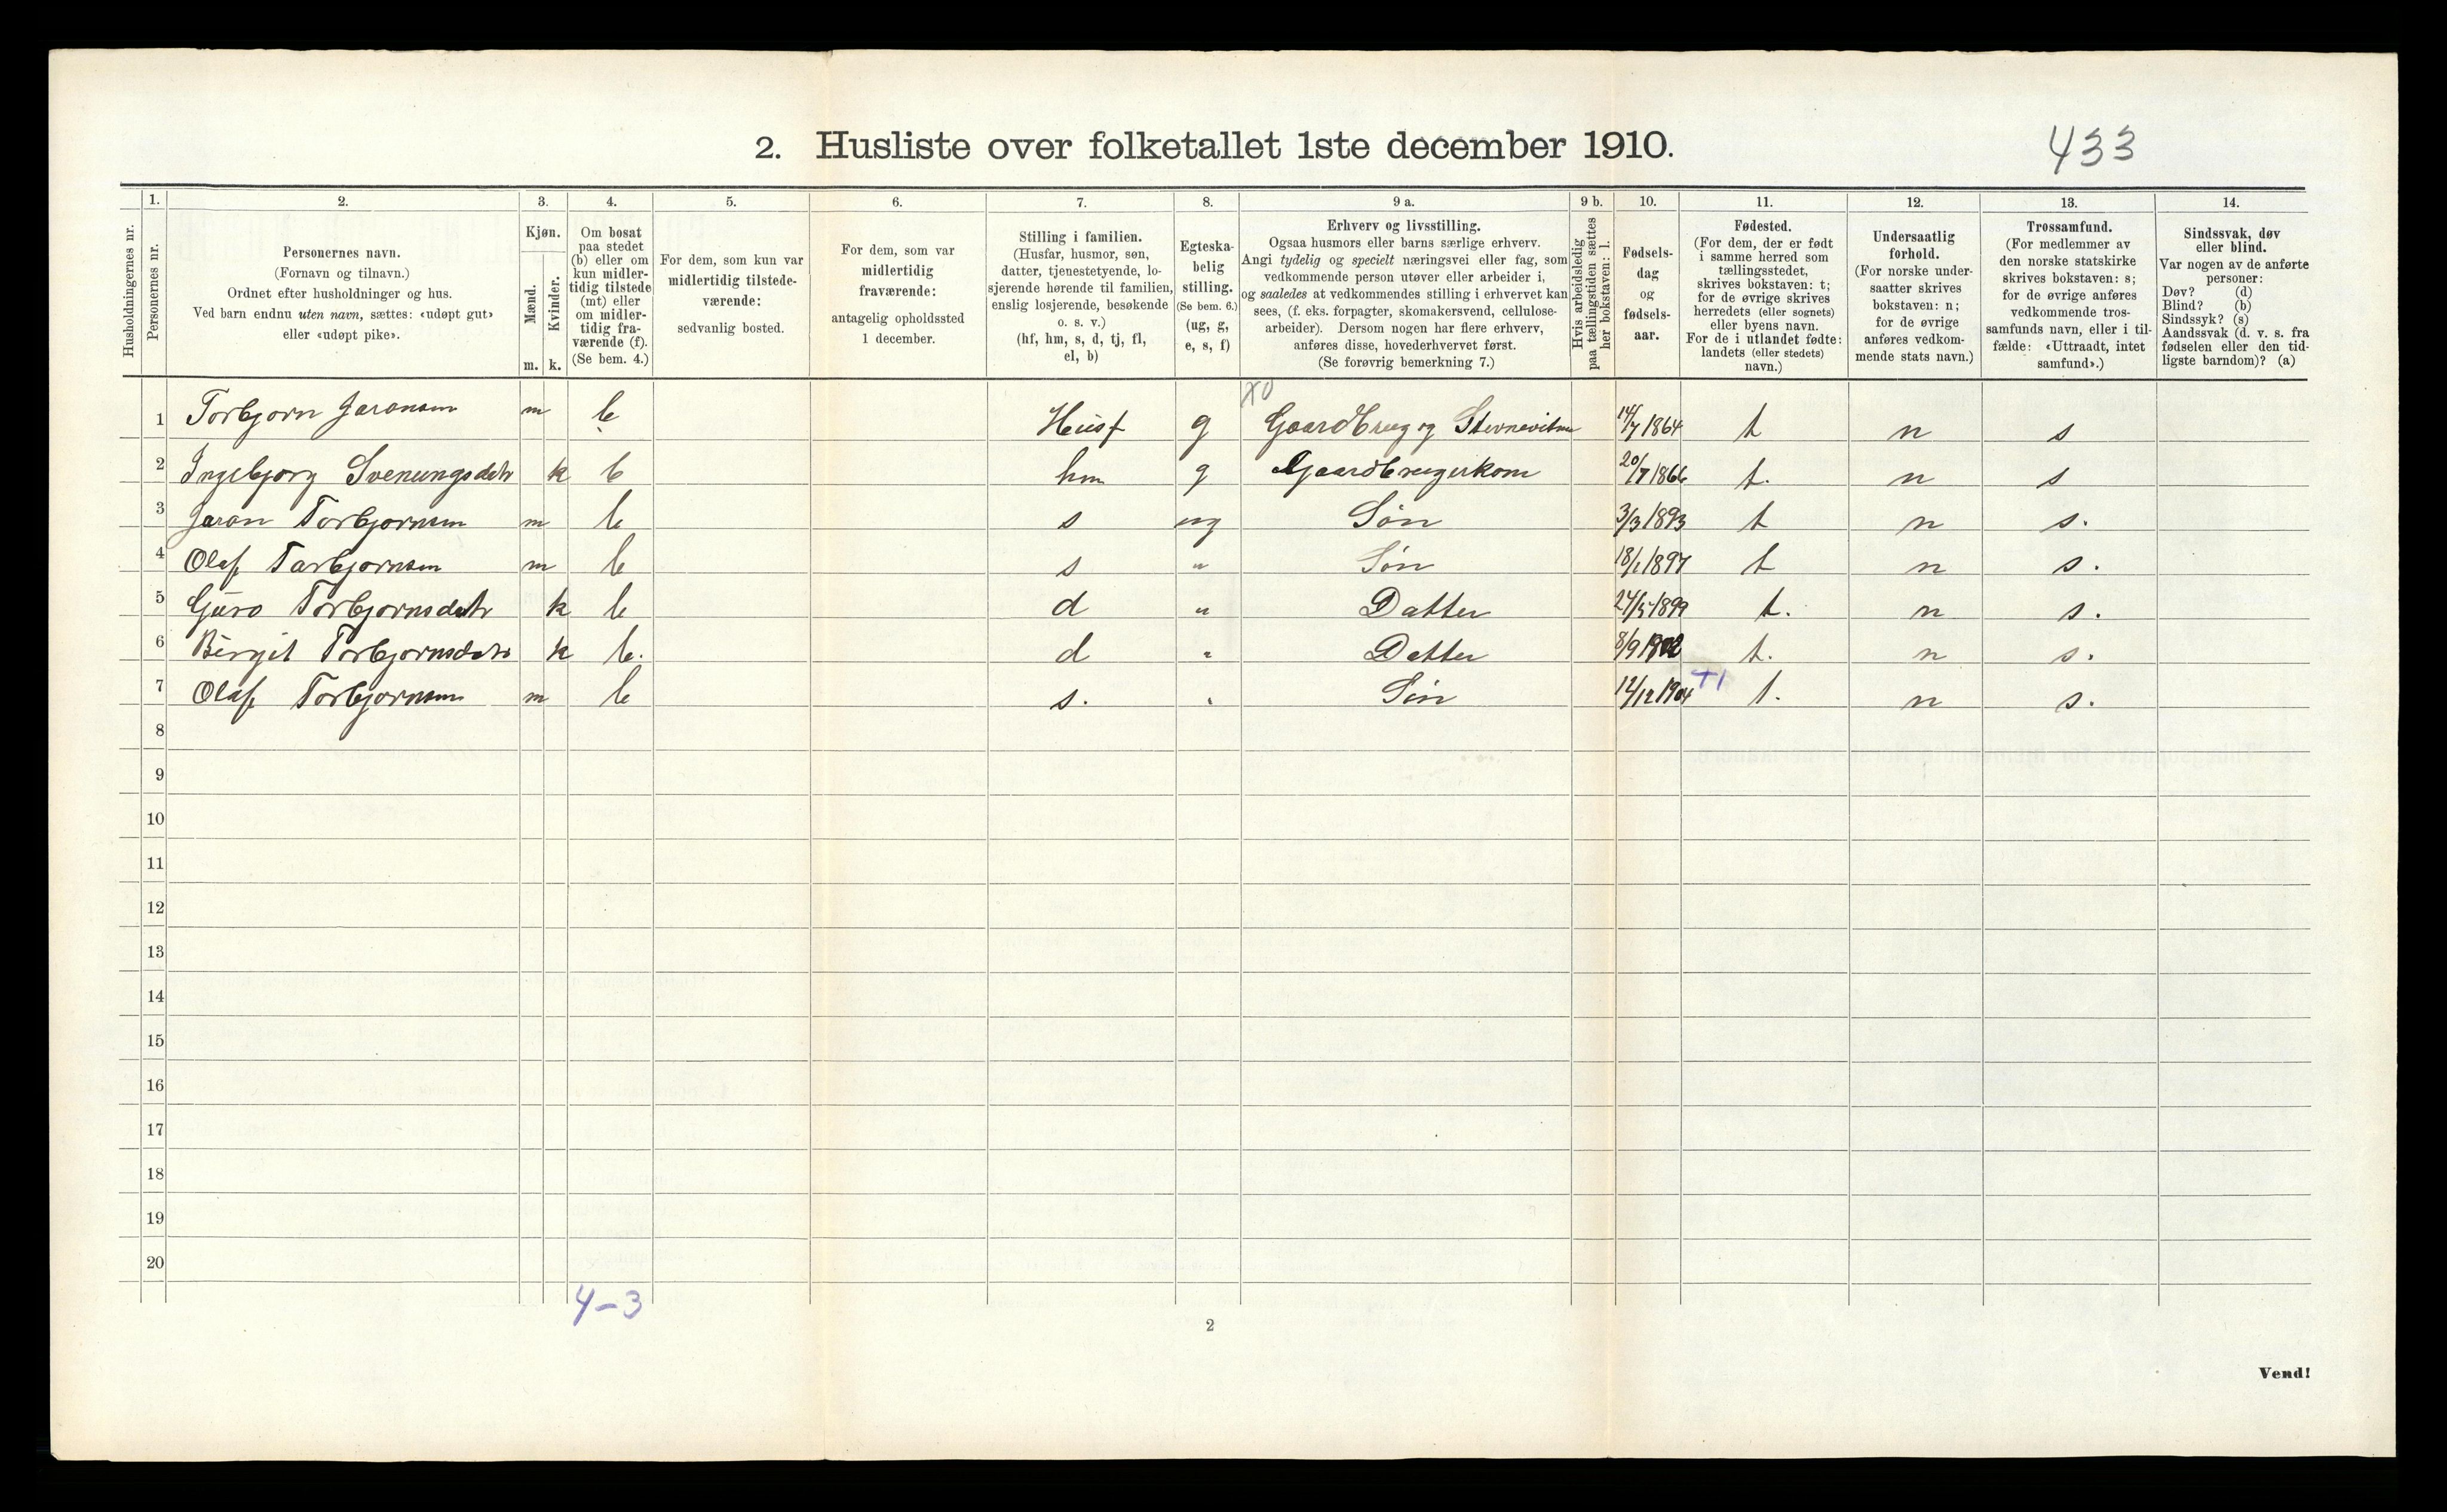 2. Husliste over folketallet 1ste december 1910.
433
Husholdningernes nr.
1. Personernes nr.
2. Personernes navn.
(Fornavn og tilnavn.)
Ordnet efter husholdninger og hus.
Ved barn endnu uten navn, sættes: «udøpt gut»
eller «udøpt pike».
3. Kjøn.
Mænd. Kvinder.
m. k.
4. Om bosat
paa stedet
(b) eller om
kun midler-
tidig tilstede
(mt) eller
om midler-
tidig fra-
værende (f).
(Se bem. 4.)
5. For dem, som kun var
midlertidig tilstede-
værende:
sedvanlig bosted.
6. For dem, som var
midlertidig
fraværende:
antagelig opholdssted
1 december.
7. Stilling i familien.
(Husfar, husmor, søn,
datter, tjenestetyende, lo-
sjerende hørende til familien,
enslig losjerende, besøkende
o. s. v.)
(hf, hm, s, d, tj, fl,
el, b)
8. Egteska-
belig
stilling.
(Se bem. 6.)
(ug, g,
e, s, f)
9 a. Erhverv og livsstilling.
Ogsaa husmors eller barns særlige erhverv.
Angi tydelig og specielt næringsvei eller fag, som
vedkommende person utøver eller arbeider i,
og saaledes at vedkommendes stilling i erhvervet kan
sees, (f. eks. forpagter, skomakersvend, cellulose-
arbeider). Dersom nogen har flere erhverv,
anføres disse, hovederhvervet først.
(Se forøvrig bemerkning 7.)
9 b. Hvis arbeidsledig
paa tællingstiden sættes
her bokstaven: l.
10. Fødsels-
dag
og
fødsels-
aar.
11. Fødested.
(For dem, der er født
i samme herred som
tællingsstedet,
skrives bokstaven: t;
for de øvrige skrives
herredets (eller sognets)
eller byens navn.
For de i utlandet fødte:
landets (eller stedets)
navn.)
12. Undersaatlig
forhold.
(For norske under-
saatter skrives
bokstaven: n;
for de øvrige
anføres vedkom-
mende stats navn.)
13. Trossamfund.
(For medlemmer av
den norske statskirke
skrives bokstaven: s;
for de øvrige anføres
vedkommende tros-
samfunds navn, eller i til-
fælde: «Uttraadt, intet
samfund».)
14. Sindssvak, døv
eller blind.
Var nogen av de anførte
personer:
Døv? (d)
Blind? (b)
Sindssyk? (s)
Aandssvak (d. v. s. fra
fødselen eller den tid-
ligste barndom)? (a)
X0
1 Torbjorn Jaronsen m b Husf g Gaardbrug og Stevnevitne 14/7 1864 t n s
2 Ingebjorg Svenungsdatr k b hm g Gaardbrugerkone 20/7 1866 t. n s
3 Jaron Torbjornsen m b s ug Søn 3/3 1893 t n s.
4 Olaf Torbjornsen m b s " Søn 18/1 1897 t n s.
5 Guro Torbjornsdatr k b d " Datter 24/5 1899 t. n s.
6 Birgit Torbjornsdatr k b. d " Datter 8/9 1902 t. n s.
7 Olaf Torbjornsen m b s. " Søn 12/12 1904 +1 t. n s.
8
9
10
11
12
13
14
15
16
17
18
19
20
4-3
2
Vend!